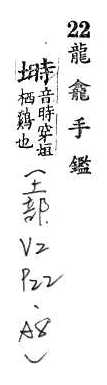 22 龍龕手鑑
塒音時穿垣
栖鷄也
(土部. V2 P22、A8)